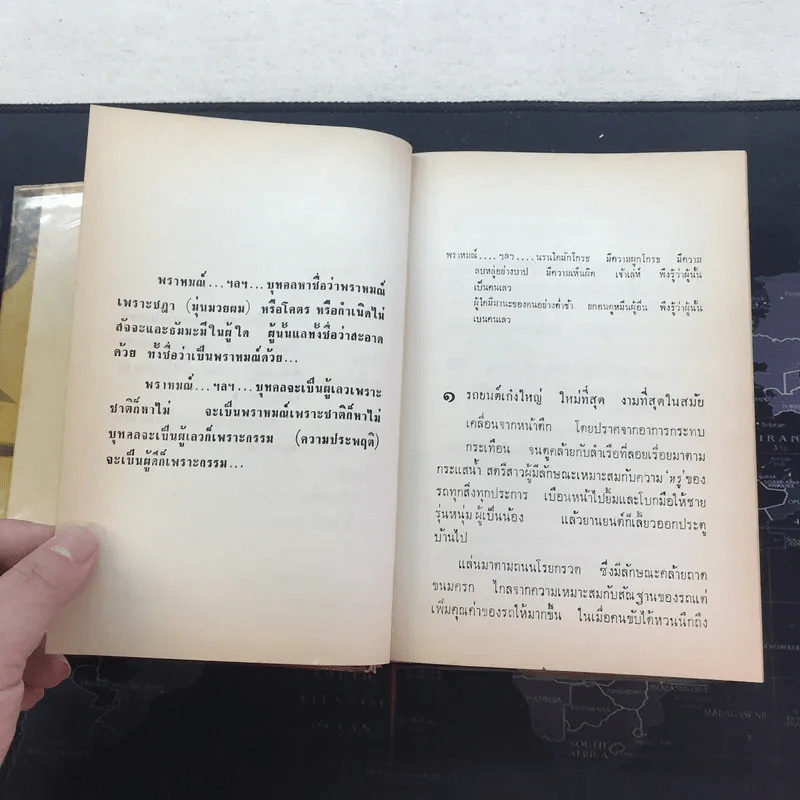 พราหมณ์...ฯลฯ...บุคคลหาชื่อว่าพราหมณ์
เพราะชฎา (มุ่นมวยผม) หรือโคตร หรือกำเนิดไม่
สัจจะและธัมมะมีในผู้ใด ผู้นั้นแลทั้งชื่อว่าสะอาด
ด้วย ทั้งชื่อว่าเป็นพราหมณ์ด้วย...
พราหมณ์...ฯลฯ...บุคคลจะเป็นผู้เลวเพราะ
ชาติก็หาไม่ จะเป็นพราหมณ์เพราะชาติก็หาไม่
บุคคลจะเป็นผู้เลวก็เพราะกรรม (ความประพฤติ)
จะเป็นผู้ดีก็เพราะกรรม...
พราหมณ์....ฯลฯ....นรนใดมักโกรธ มีความผูกโกรธ มีความ
ลบหลู่อย่างบาป มีความเห็นผิด เจ้าเล่ห์ พึงรู้ว่าผู้นั้น
เป็นคนเลว
ผู้ใดมีมานะของตนอย่างต่ำช้า ยกตนดูหมิ่นผู้อื่น พึงรู้ว่าผู้นั้น
เป็นคนเลว
๑ รถยนต์เก๋งใหญ่ ใหม่ที่สุด งามที่สุดในสมัย
เคลื่อนจากหน้าตึก โดยปราศจากอาการกระทบ
กระเทือน จนดูคล้ายกับลำเรือที่ลอยเรื่อยมาตาม
กระแสน้ำ สตรีสาวผู้มีลักษณะเหมาะสมกับความ 'หรู' ของ
รถทุกสิ่งทุกประการ เบือนหน้าไปยิ้มและโบกมือให้ชาย
รุ่นหนุ่ม ผู้เป็นน้อง แล้วยานยนต์ก็เลี้ยวออกประตู
บ้านไป
แล่นมาตามถนนโรยกรวด ซึ่งมีลักษณะคล้ายถาด
ขนมครก ไกลจากความเหมาะสมกับสัณฐานของรถแต่
เพิ่มคุณค่าของรถให้มากขึ้น ในเมื่อคนขับได้หวนนึกถึง
IRAN
MADAGASCAR
NAMIBIA
SOUTH
AFRICA
OCEAN